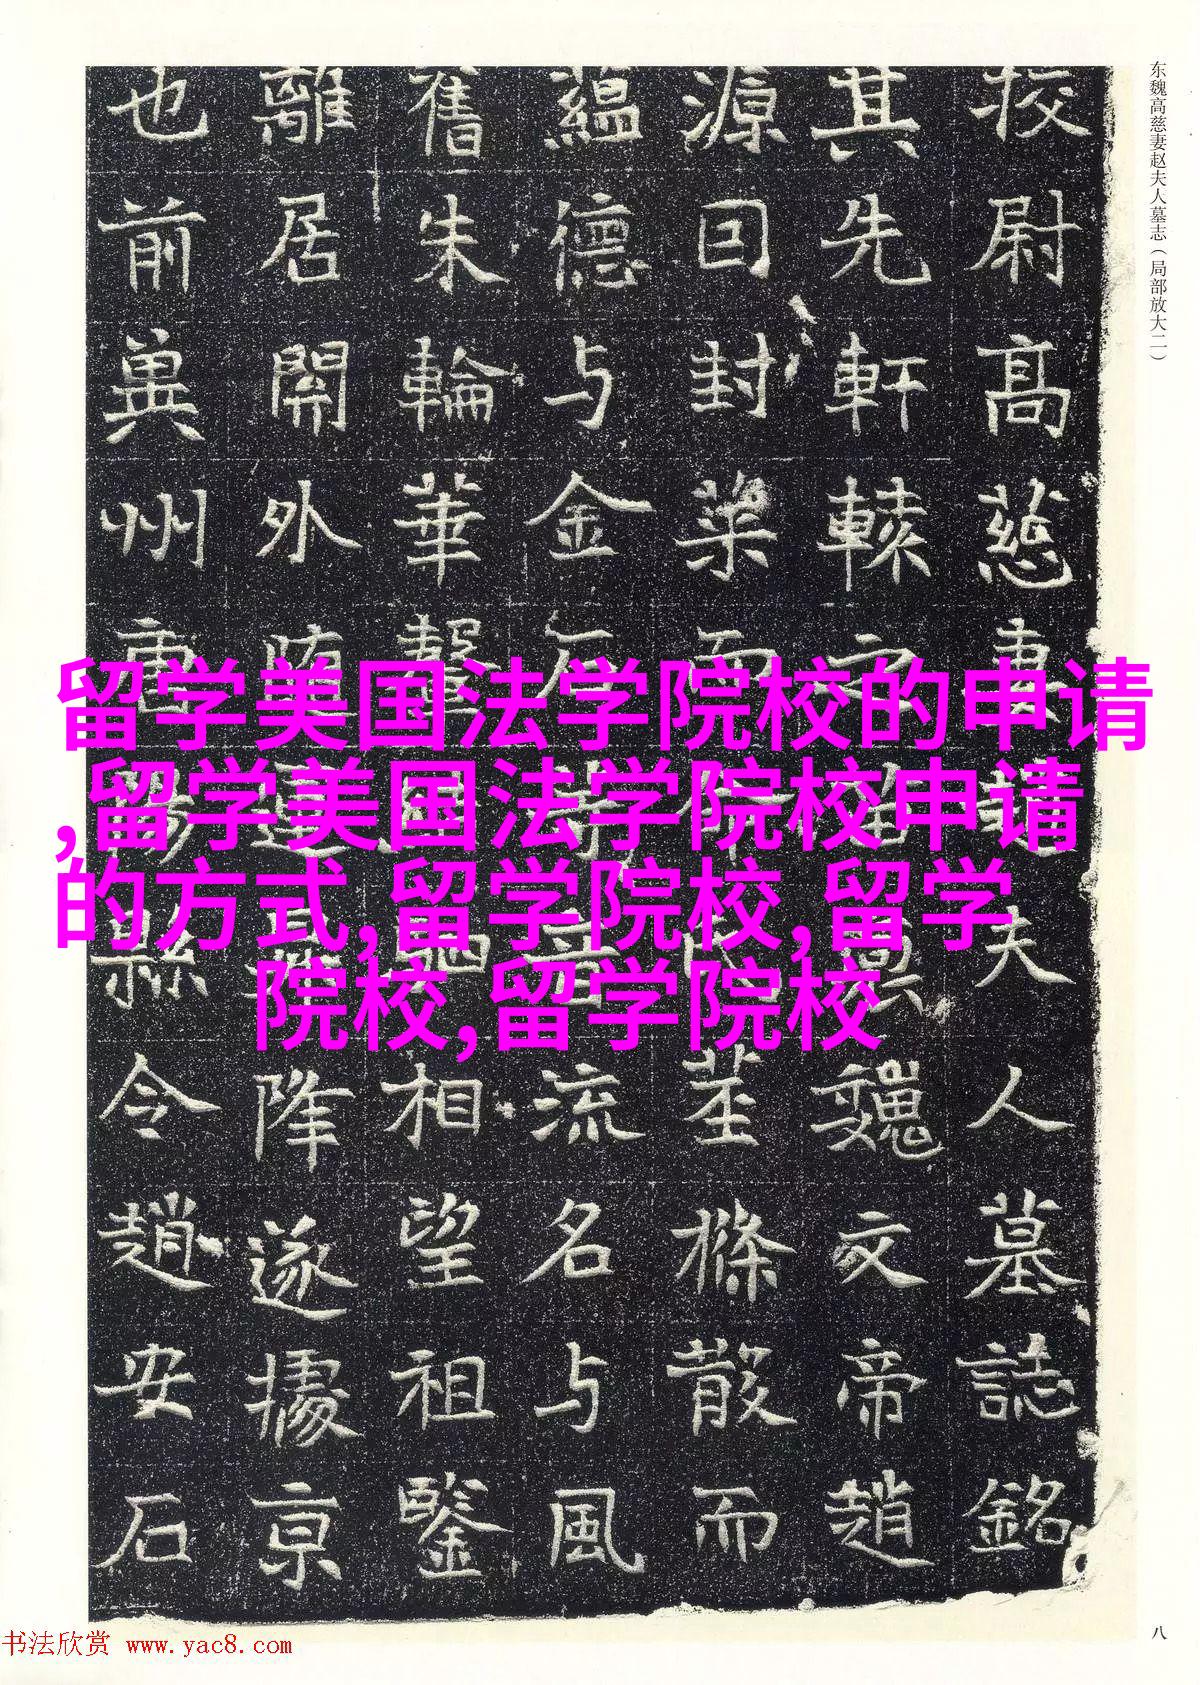 东魏高慈妻赵夫人墓志（局部放大二）
挍尉高慈妻趙夫人墓誌銘
其先軒轅之魏文帝趙
源囙封而茎條散而
蘊德与金石音流名与風
舊朱輪華相望祖鑒
離居關外随運降遂據京
也前兾州高陽縣令趙安石
留学美国法学院校的申请
,留学美国法学院校申请
的方式,留学院校,留学
院校,留学院校
八
书法欣赏 www.yac8.com